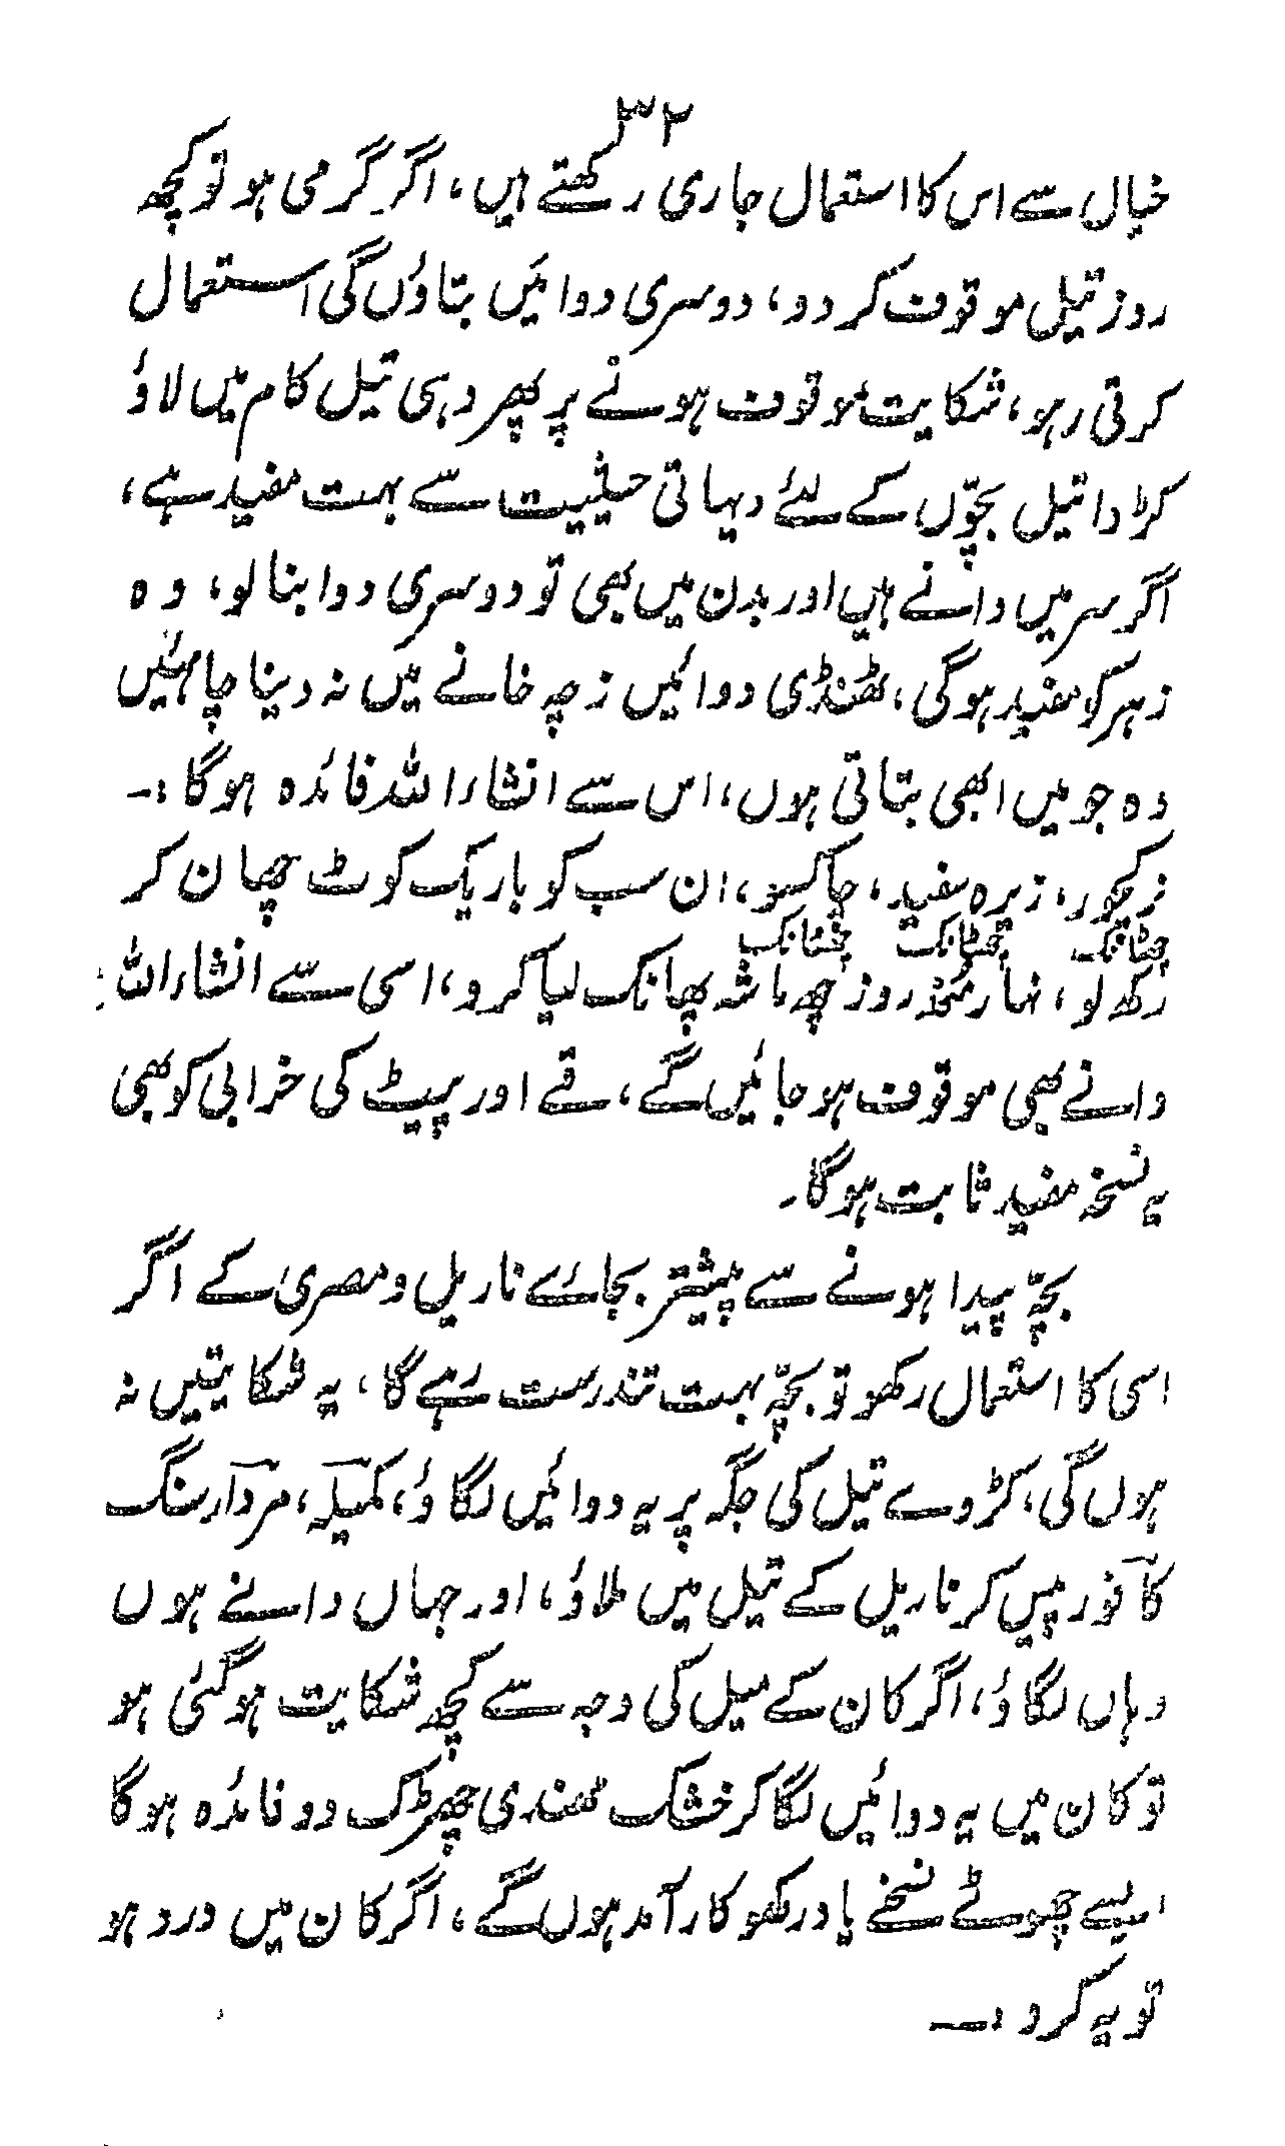 ۳۲
خیال سے اس کا استعمال جاری رکھتے ہیں، اگر گرمی ہو تو کچھ
روز تیل موقوف کر دو، دوسری دوائیں بتاؤں گی استعمال
کرتی رہو، شکایت موقوف ہونے پر پھر وہی تیل کام میں لاؤ
کڑوا تیل بچّوں کے لئے دیہاتی حیثیت سے بہت مفید ہے،
اگر سر میں دانے ہیں اور بدن میں بھی تو دوسری دوا بنا لو، وہ
زہر کو مفید ہوگی، ٹھنڈی دوائیں زچہ خانے میں نہ دینا چاہئیں
وہ جو میں ابھی بتاتی ہوں، اس سے انشاء اللہ فائدہ ہوگا :۔
نرکچور، زیرہ سفید، چاکسو، ان سب کو باریک کوٹ چھان کر
چھٹانک چھٹانک چھٹانک
رکھ لو، نہار منھ روز چھ ماشہ پھانک لیا کرو، اسی سے انشاء اللہ
دانے بھی موقوف ہو جائیں گے، قے اور پیٹ کی خرابی کو بھی
یہ نسخہ مفید ثابت ہوگا۔
بچّہ پیدا ہونے سے پیشتر بجائے ناریل و مصری کے اگر
اسی کا استعمال رکھو تو بچّہ بہت تندرست رہے گا، یہ شکایتیں نہ
ہوں گی، کڑوے تیل کی جگہ پر یہ دوائیں لگاؤ، کمیلہ، مردارسنگ
کافور پیس کر ناریل کے تیل میں ملاؤ، اور جہاں دانے ہوں
وہاں لگاؤ، اگر کان کے میل کی وجہ سے کچھ شکایت ہوگئی ہو
تو کان میں یہ دوائیں لگا کر خشک مہندی چھڑک دو فائدہ ہوگا
ایسے چھوٹے نسخے یاد رکھو کارآمد ہوں گے، اگر کان میں درد ہو
تو یہ کرو :۔